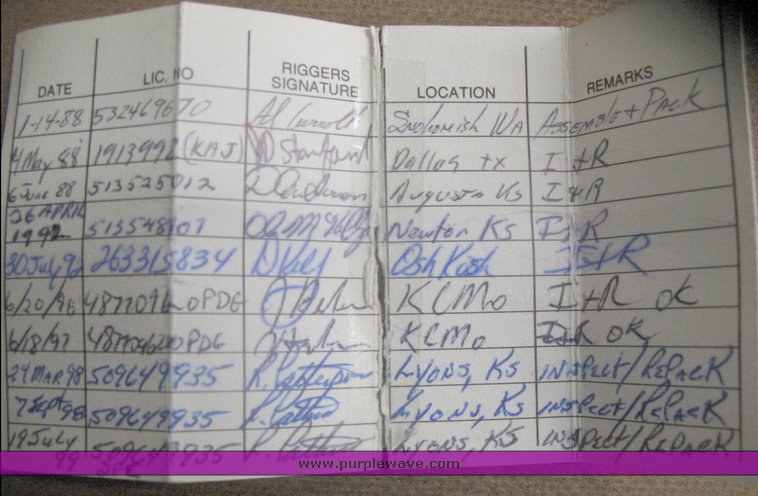 DATE LIC. NO RIGGERS SIGNATURE LOCATION REMARKS
1-14-88 532469670 Al Snohomish WA ASSEMBLE + PACK
4 May 88 1913992 (KAJ) D Stanford Dallas tx I + R
6 June 88 513525012 Augusta Ks I & R
26 APRIL 1992 Newton Ks I + R
30 July 92 263315834 OshKosh I + R
6/20/96 PDG KCMo I + R OK
6/18/97 PDG KCMo I R OK
24 MAR 98 509649935 R. Patterson Lyons, KS INSPECT/REPACK
7 Sept 98 509649935 R. Lyons, KS INSPECT/REPACK
19 July 99 509649935 R. Lyons, KS INSPECT/REPACK
www.purplewave.com